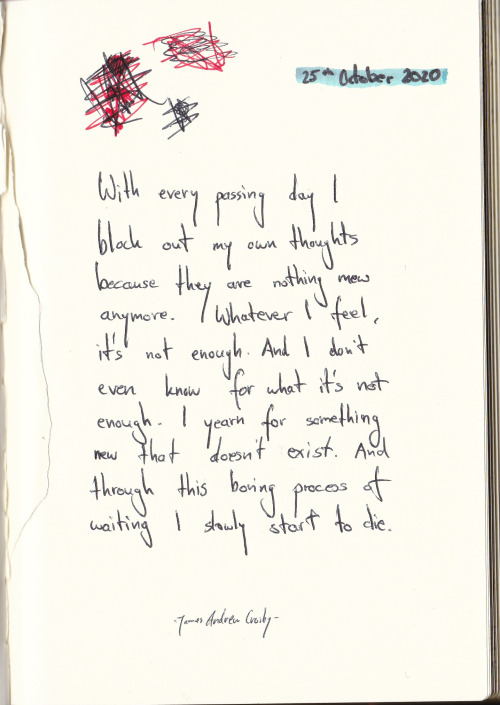 25th October 2020
With every passing day I
block out my own thoughts
because they are nothing new
anymore. Whatever I feel,
it's not enough. And I don't
even know for what it's not
enough. I yearn for something
new that doesn't exist. And
through this boring process of
waiting I slowly start to die.
-James Andrew Crosby-